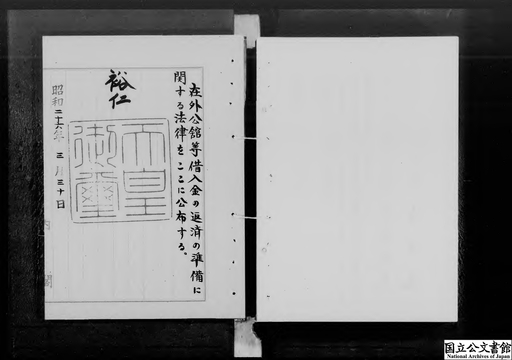 在外公館等借入金の返済の準備に
関する法律をここに公布する。
裕仁
天皇
御璽
昭和二十六年三月三十日
内閣
国立公文書館
National Archives of Japan